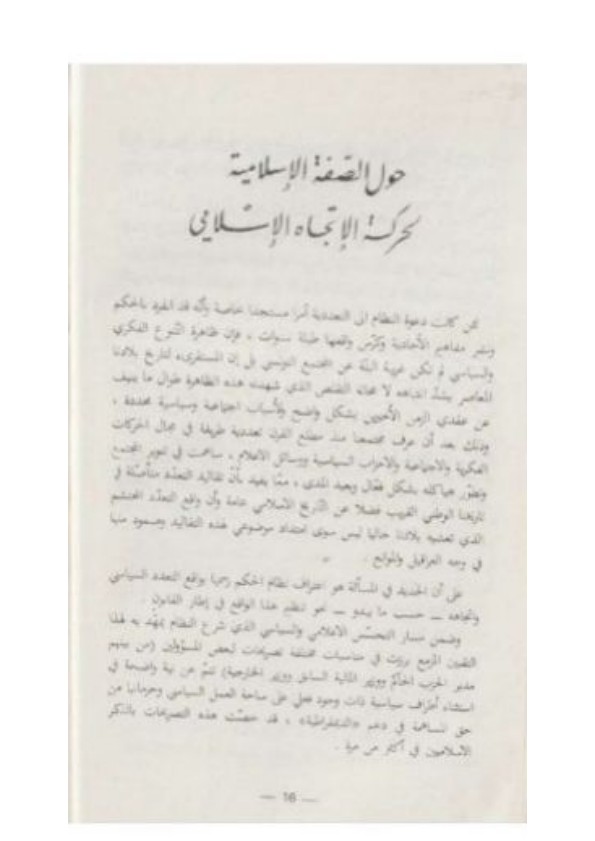 حول الصّفة الإسلامية
لحركة الإتجاه الإسلامي
لئن كانت دعوة النظام الى التعددية أمرا مستجدا خاصة وأنّه قد انفرد بالحكم
ونشر مفاهيم الأحادية وكرّس واقعها طيلة سنوات ، فإن ظاهرة التنوع الفكري
والسياسي لم تكن غريبة البتّة عن المجتمع التونسي بل إن المستقرىء لتاريخ بلادنا
المعاصر يشدّ انتباهه لا محالة التقلص الذي شهدته هذه الظاهرة طوال ما ينيف
عن عقدي الزمن الأخيرين بشكل واضح ولأسباب اجتماعية وسياسية محددة ،
وذلك بعد أن عرف مجتمعنا منذ مطلع القرن تعددية طريفة في مجال الحركات
الفكرية والاجتماعية والاحزاب السياسية ووسائل الاعلام ، ساهمت في تحوير المجتمع
وتطوّر هياكله بشكل فعّال وبعيد المدى ، ممّا يفيد بأنّ تقاليد التعدّد متأصّلة في
تاريخنا الوطني القريب فضلا عن التاريخ الاسلامي عامة وأن واقع التعدّد المحتشم
الذي تعيشه بلادنا حاليا ليس سوى امتداد موضوعي لهذه التقاليد وصمود منها
في وجه العراقيل والموانع .
على أن الجديد في المسألة هو اعتراف نظام الحكم رسميا بواقع التعدد السياسي
واتجاهه — حسب ما يبدو — نحو تنظير هذا الواقع في إطار القانون .
وضمن مسار التحسّس الاعلامي والسياسي الذي شرع النظام يمهّد به لهذا
التقنين المزمع برزت في مناسبات مختلفة تصريحات لبعض المسؤولين (من بينهم
مدير الحزب الحاكم ووزير المالية السابق ووزير الخارجية) تنمّ عن نية واضحة في
استثناء أطراف سياسية ذات وجود فعلي على ساحة العمل السياسي وحرمانها من
حق المساهمة في دعم «الديمقراطية» ، قد خصّت هذه التصريحات بالذكر
الاسلاميين في أكثر من مرة .
— 16 —